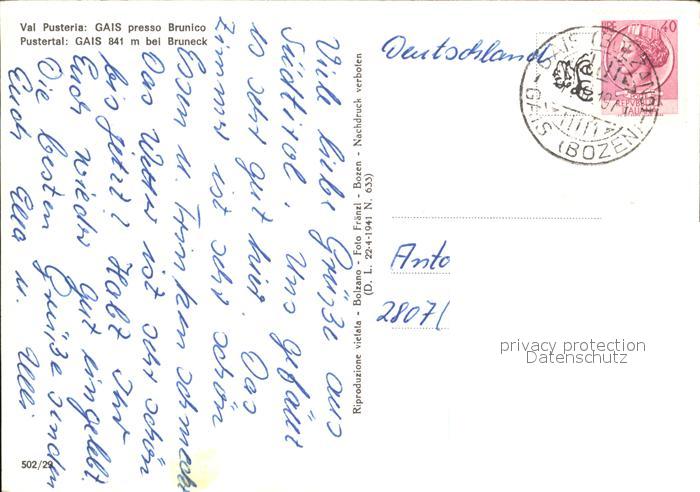 Val Pusteria: GAIS presso Brunico
Pustertal: GAIS 841 m bei Bruneck
Viele liebe Grüße aus
Südtirol. Uns gefällt
es sehr gut hier. Das
Zimmer ist sehr schön
Essen u. Trinken schmeckt
Das Wetter ist sehr schön
bis jetzt! Habt Ihr
Euch wieder gut eingelebt.
Die besten Grüße senden
Euch Elsa u. Ulli
502/29
Riproduzione vietata - Bolzano - Foto Fränzl - Bozen - Nachdruck verboten
(D. L. 22-4-1941 N. 633)
Deutschland
LIRE 40
GAIS (BOLZANO)
GAIS (BOZEN)
Anto
2807/
privacy protection
Datenschutz